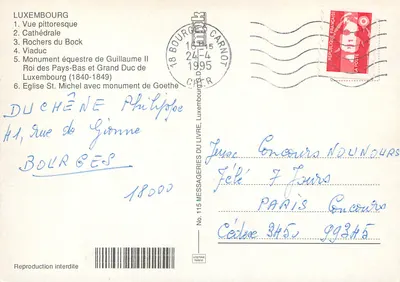 LUXEMBOURG
1. Vue pittoresque
2. Cathédrale
3. Rochers du Bock
4. Viaduc
5. Monument équestre de Guillaume II
Roi des Pays-Bas et Grand Duc de
Luxembourg (1840-1849)
6. Eglise St. Michel avec monument de Goethe
DUCHÊNE Philippe
41, Rue de Gionne
BOURGES
18000
Reproduction interdite
No. 115 MESSAGERIES DU LIVRE, Luxembourg
18 BOURGES CARNOT
24-4
1995
CHER
Jeux Concours NOUNOURS
Télé 7 Jours
PARIS Concours
Cédex 345 99345